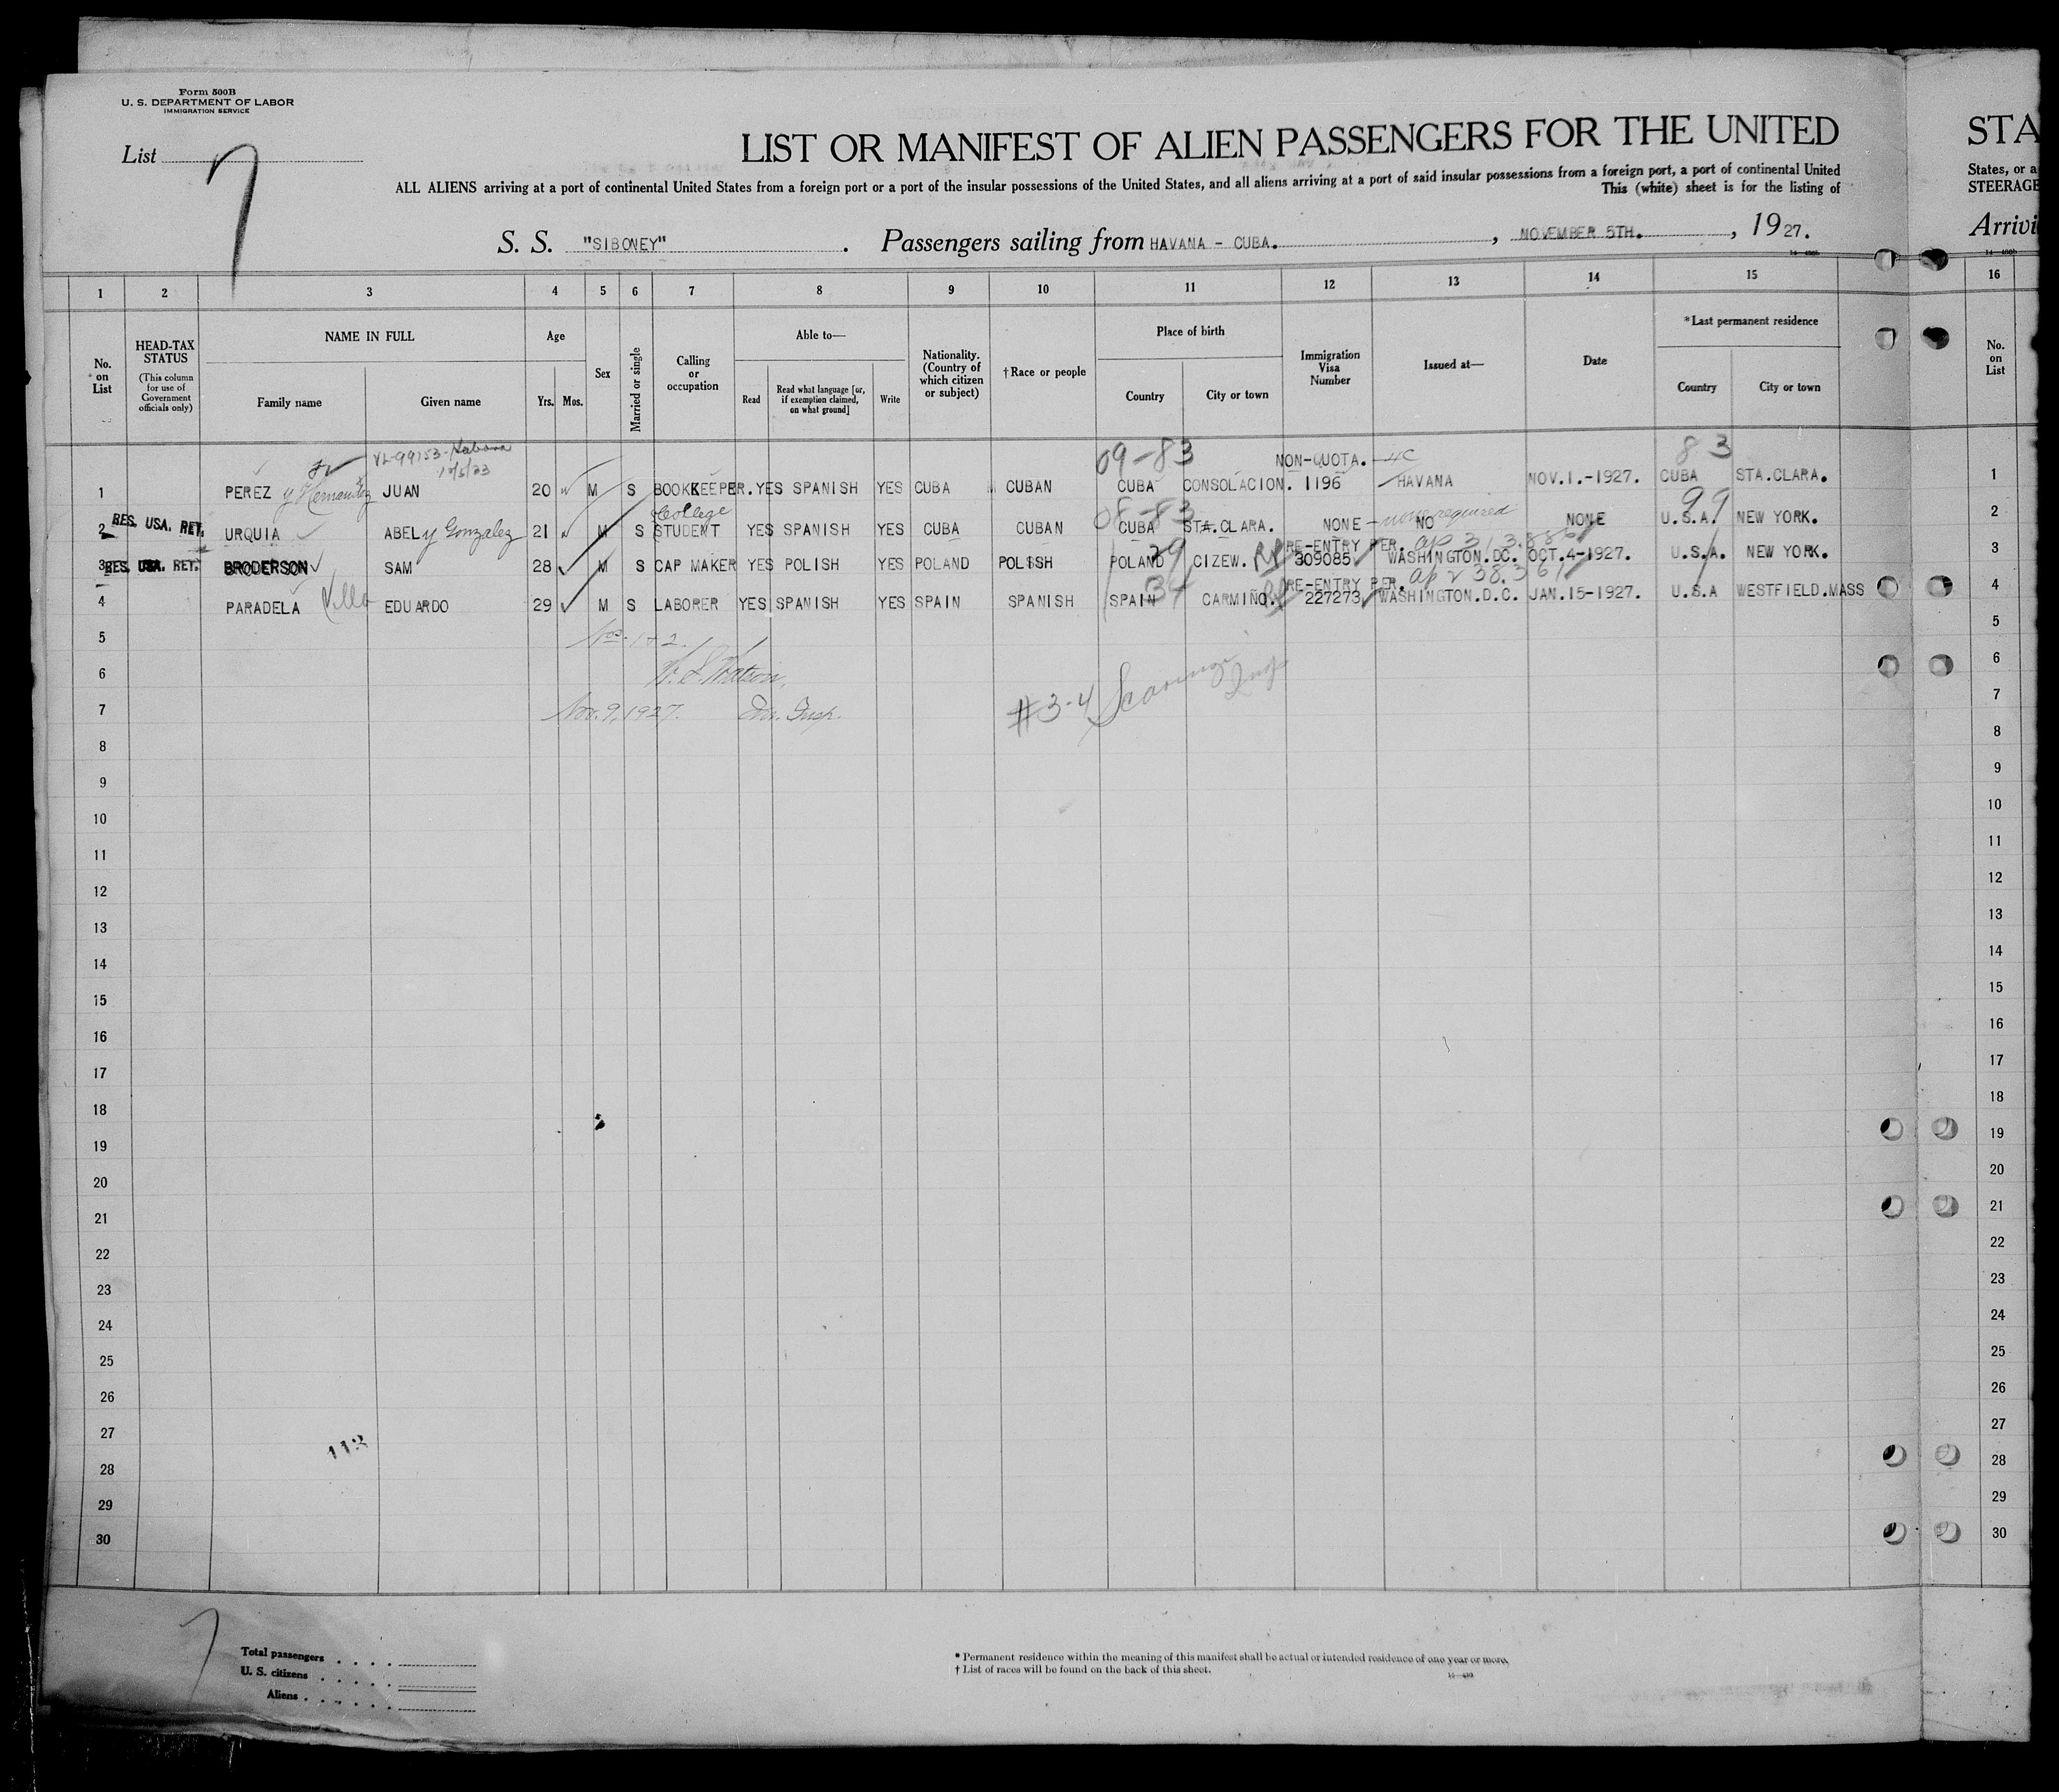 Form 500B
U. S. DEPARTMENT OF LABOR
IMMIGRATION SERVICE
List 7
LIST OR MANIFEST OF ALIEN PASSENGERS FOR THE UNITED
STA
ALL ALIENS arriving at a port of continental United States from a foreign port or a port of the insular possessions of the United States, and all aliens arriving at a port of said insular possessions from a foreign port, a port of continental United
States, or a
This (white) sheet is for the listing of
STEERAGE
S. S. "SIBONEY" . Passengers sailing from HAVANA - CUBA. , NOVEMBER 5TH. , 1927.
Arrivi
1 2 3 4 5 6 7 8 9 10 11 12 13 14 15 16
No. on List
HEAD-TAX STATUS (This column for use of Government officials only)
NAME IN FULL
Family name Given name
Age
Yrs. Mos.
Sex
Married or single
Calling or occupation
Able to—
Read
Read what language [or, if exemption claimed, on what ground]
Write
Nationality. (Country of which citizen or subject)
†Race or people
Place of birth
Country City or town
Immigration Visa Number
Issued at—
Date
*Last permanent residence
Country City or town
No. on List
VL-99153-Habana
10/5/33
09-83 NON-QUOTA. -4C 83
1 PEREZ y Hernandez JUAN 20 M S BOOKKEEPER. YES SPANISH YES CUBA CUBAN CUBA CONSOLACION. 1196 HAVANA NOV.1.-1927. CUBA STA.CLARA. 1
College 08-83 none required 99
2 RES. USA. RET. URQUIA ABEL y Gonzalez 21 M S STUDENT YES SPANISH YES CUBA CUBAN CUBA STA.CLARA. NONE - NO NONE U.S.A. NEW YORK. 2
29 RE-ENTRY PER.
3 RES. USA. RET. BRODERSON SAM 28 M S CAP MAKER YES POLISH YES POLAND POLSSH POLAND CIZEW. 309085 WASHINGTON.DC. OCT.4-1927. U.S.A. NEW YORK. 3
RE-ENTRY PER.
4 PARADELA EDUARDO 29 M S LABORER YES SPANISH YES SPAIN SPANISH SPAIN CARMIÑO. 227273 WASHINGTON.D.C. JAN.15-1927. U.S.A WESTFIELD.MASS 4
5 Nos. 1 & 2. 5
6 W. S. Watson, 6
7 Nov. 9, 1927. Insp. #3-4 7
8 8
9 9
10 10
11 11
12 12
13 13
14 14
15 15
16 16
17 17
18 18
19 19
20 20
21 21
22 22
23 23
24 24
25 25
26 26
27 27
113
28 28
29 29
30 30
7
Total passengers
U. S. citizens
Aliens
* Permanent residence within the meaning of this manifest shall be actual or intended residence of one year or more.
† List of races will be found on the back of this sheet.